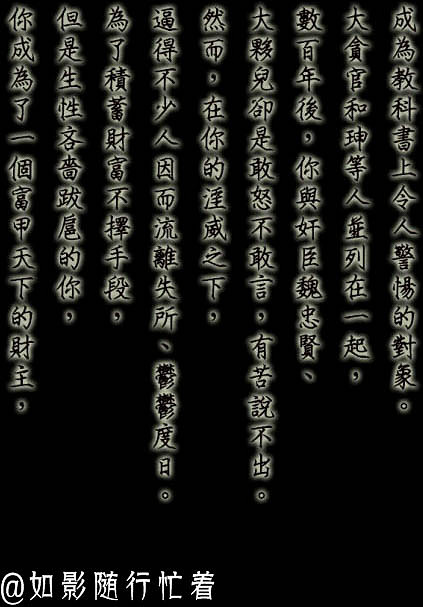 你成為了一個富甲天下的財主，
但是生性吝嗇跋扈的你，
為了積蓄財富不擇手段，
逼得不少人因而流離失所、鬱鬱度日。
然而，在你的淫威之下，
大夥兒卻是敢怒不敢言，有苦說不出。
數百年後，你與奸臣魏忠賢、
大貪官和珅等人並列在一起，
成為教科書上令人警惕的對象。
@如影随行忙着